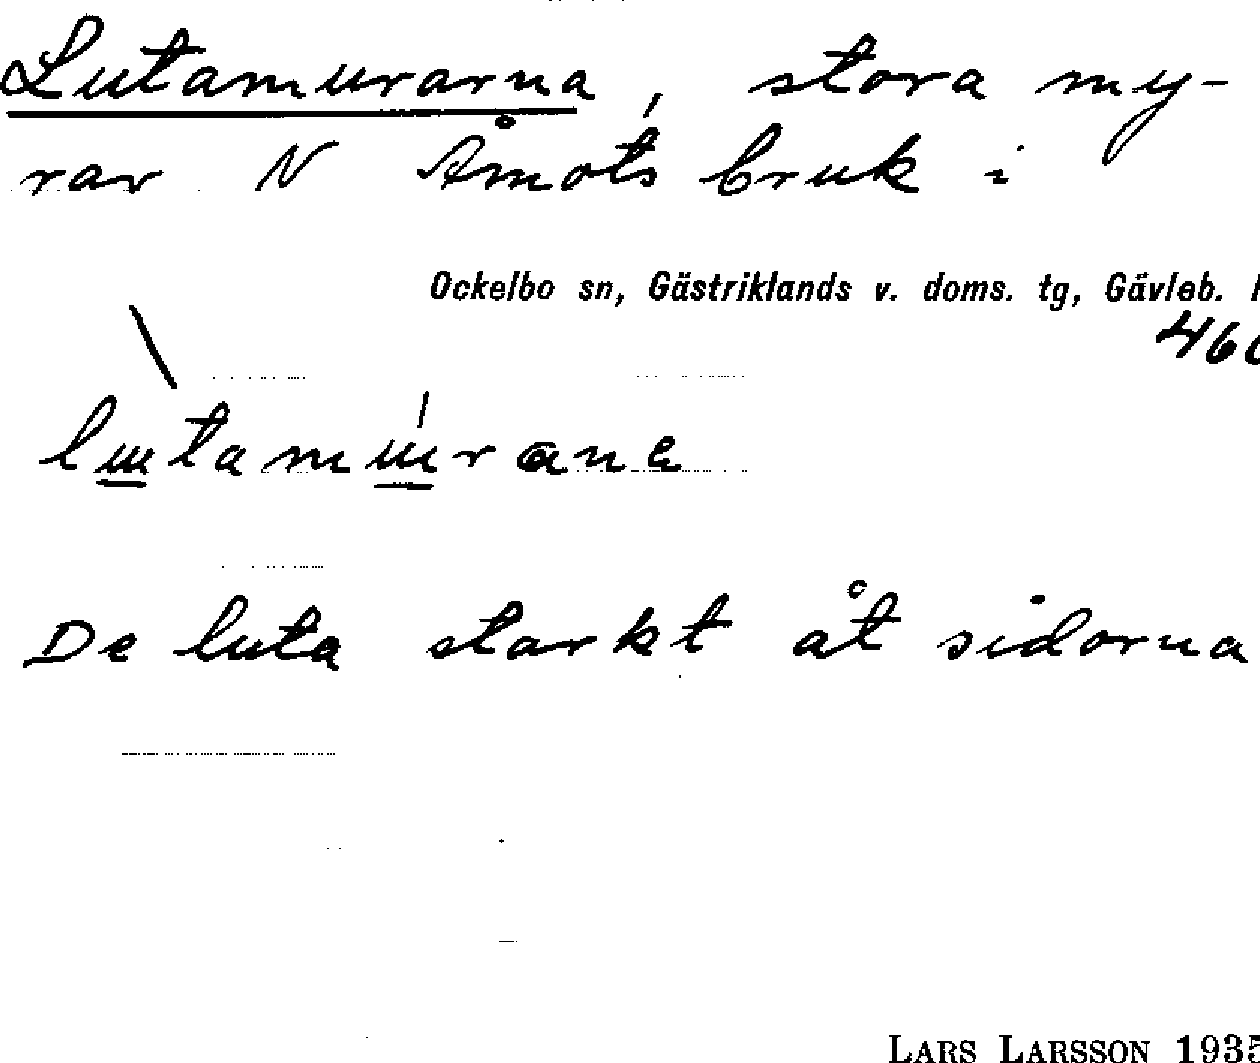 Lutamurarna, stora my-
rar N Åmots bruk i
Ockelbo sn, Gästriklands v. doms. tg, Gävleb.
De luta starkt åt sidorna
LARS LARSSON 1935